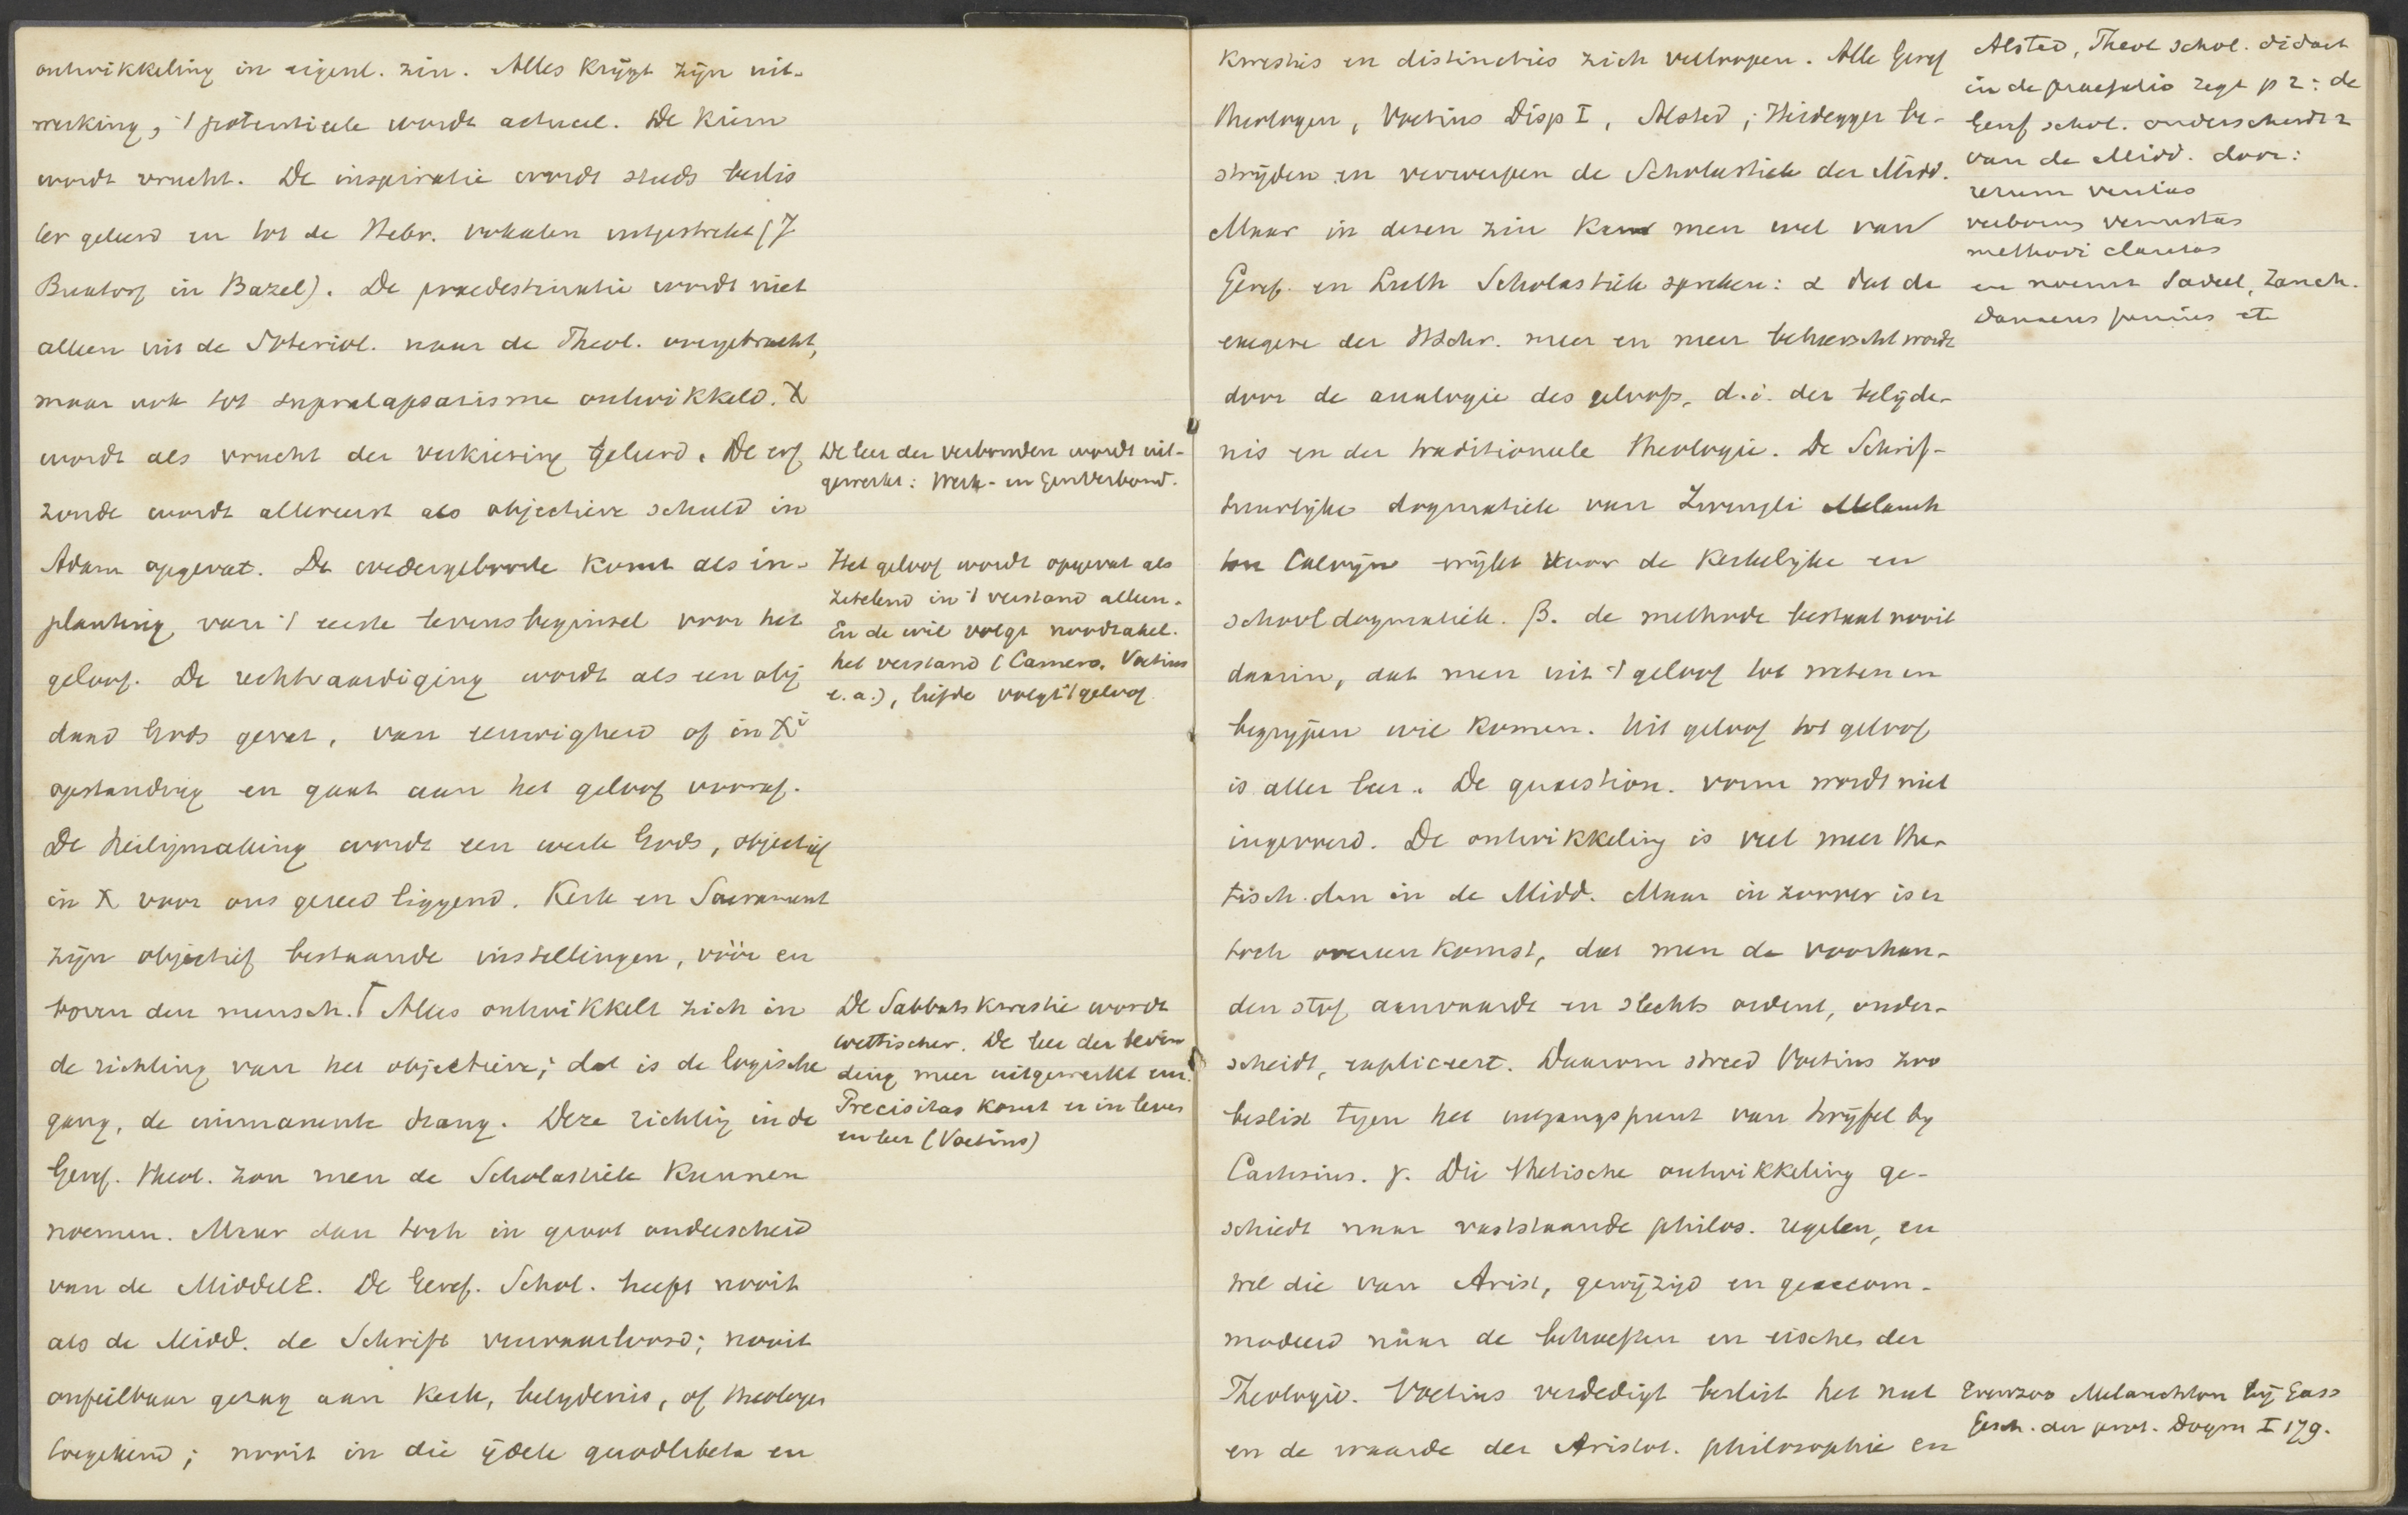 ontwikkeling in eigenl. zin. Alles krijgt zijn uit-
werking; 't potentieele wordt actueel. De kiem
wordt vrucht. De inspiratie wordt steeds beslis
ter geleerd en tot de Hebr. vokalen uitgestrekt (J
Buxtorf in Bazel). De praedestinatie wordt niet
alleen uit de Soteriol. naar de Theol. overgebracht,
maar ook tot supralapsarisme ontwikkeld. X
wordt als vrucht der verkiezing geleerd. De erf
zonde wordt allereerst als objectieve schuld in
Adam opgevat. De wedergeboorte komt als in-
planting van 't eerste levensbeginsel voor het
geloof. De rechtvaardiging wordt als een obj
daad Gods gevat, van eeuwigheid of in Xi
opstanding en gaat aan het geloof vooraf.
De heiligmaking wordt een werk Gods, objectief
in X voor ons gereed liggend. Kerk en Sacrament
zijn objectief bestaande instellingen, vóór en
boven den mensch. Γ Alles ontwikkelt zich in
de richting van het objectieve; dat is de logische
gang, de immanente drang. Deze richting in de
Geref. theol. zou men de Scholastiek kunnen
noemen. Maar dan toch in groot onderscheid
van de MiddelE. De Geref. Schol. heeft nooit
als de Midd. de Schrift verwaarloosd; nooit
onfeilbaar gezag aan kerk, belijdenis, of theologen
toegekend; nooit in die ijdele quodlibeta en
De leer der verbonden wordt uit-
gewerkt: Werk- en Gen Verbond.
Het geloof wordt opgevat als
zetelend in 't verstand alleen.
En de wil volgt noodzakel.
het verstand (Camero, Voetius
e.a.), liefde volgt 't geloof
De Sabbatskwestie wordt
wettischer. De leer der bevin
ding meer uitgewerkt enz.
Precisitas komt er in leven
en leer (Voetius)
kwesties en distincties zich verloopen. Alle Geref
theologen, Voetius Disp I, Alsted, Heidegger be-
strijden en verwerpen de Scholastiek der Midd.
Maar in dezen zin kan men wel van
Geref. en Luth Scholastiek spreken: α dat de
exegese der HSchr. meer en meer beheerscht wordt
door de analogie des geloofs, d.i. der belijde-
nis en der traditioneele theologie. De Schrif-
tuurlijke dogmatiek van Zwingli Melanch
ton Calvijn wijkt voor de kerkelijke en
schooldogmatiek. β. de methode bestaat nooit
daarin, dat men uit 't geloof tot weten en
begrijpen wil komen. Uit geloof tot geloof
is aller leer. De quaestion. vorm wordt niet
ingevoerd. De ontwikkeling is veel meer the-
tisch dan in de Midd. Maar in zoover is er
toch overeenkomst, dat men de voorhan-
den stof aanvaardt en slechts ordent, onder-
scheidt, expliceert. Daarom streed Voetius zoo
beslist tegen het uitgangspunt van twijfel by
Cartesius. γ. Die thetische ontwikkeling ge-
schiedt naar vaststaande philos. regelen, en
wel die van Arist, gewijzigd en geaccom-
modeerd naar de behoeften en eischen der
Theologie. Voetius verdedigt beslist het nut
en de waarde der Aristot. philosophie en
Alsted, Theol schol. didact
in de praefatio zegt p 2: de
Geref schol. onderscheidt z
van de Midd. door:
rerum veritas
verborum venustas
methodi claritas
en noemt Sadeel, Zanch.
Danaeus Junius etc
Evenzoo Melanchton bij Gass
Gesch. der prot. Dogm I 179.